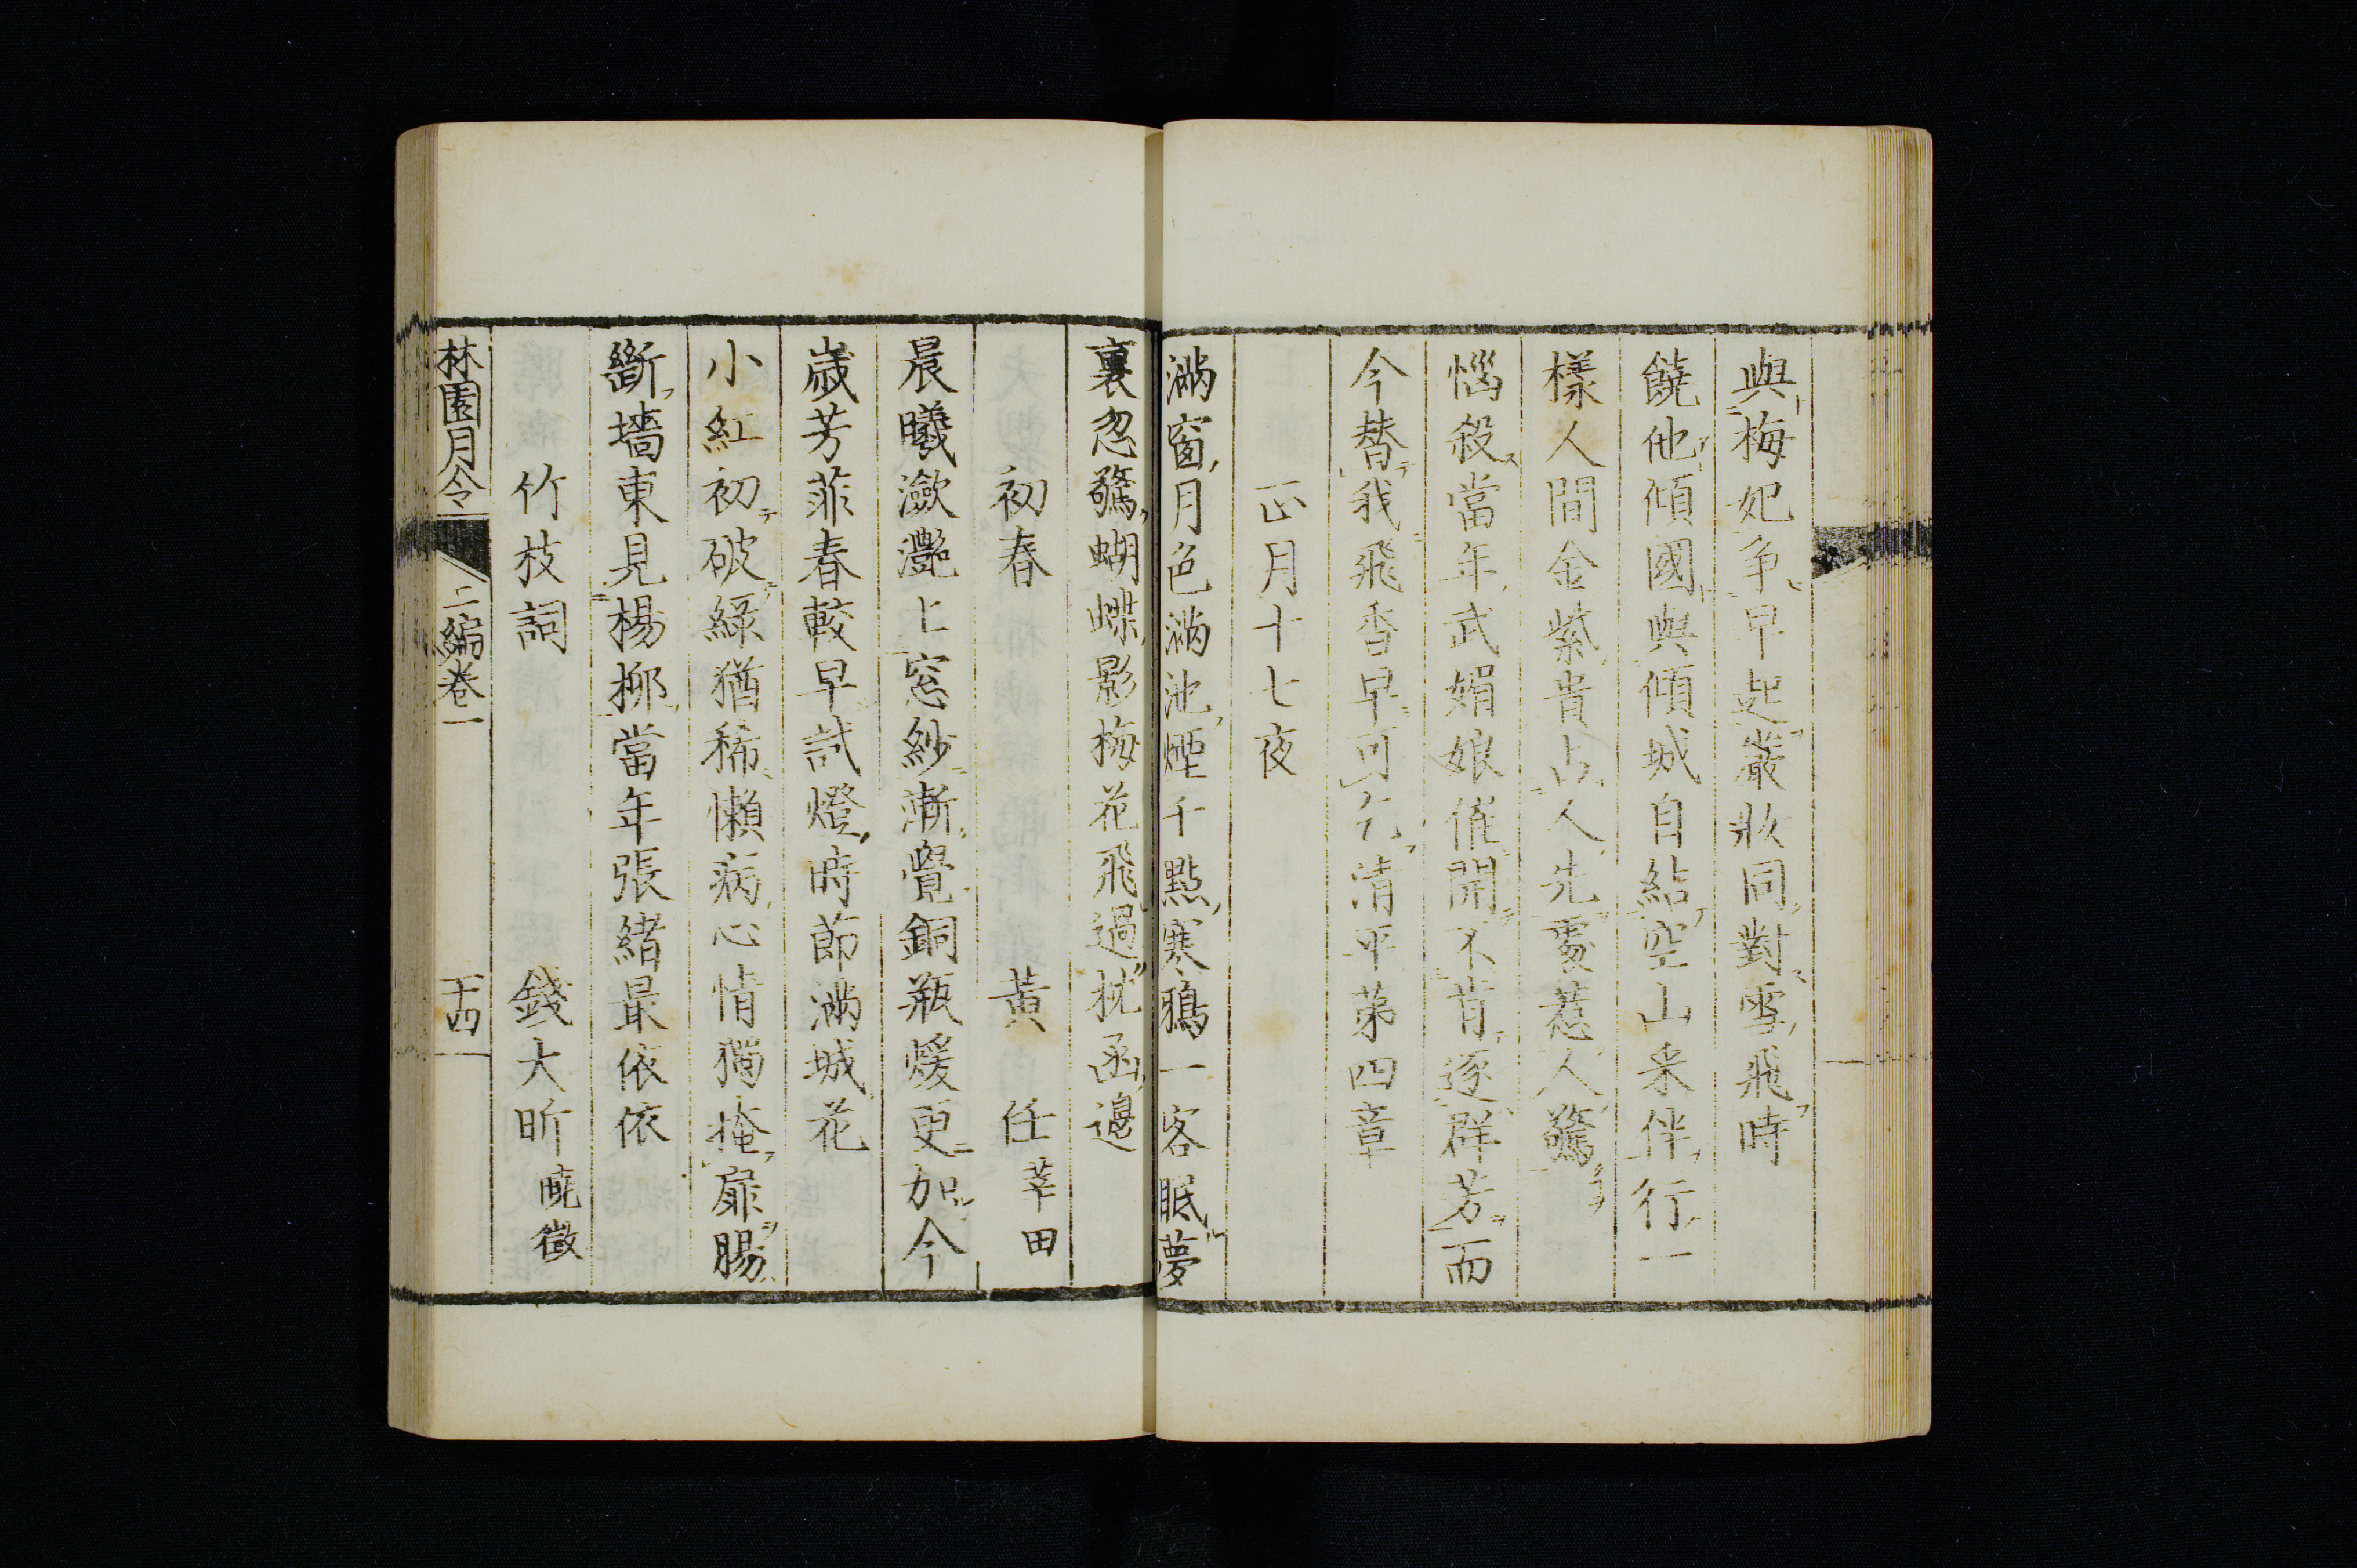 與梅妃爭早起嚴妝同對雪飛時
饒他傾國與傾城自結空山来伴行一
樣人間金紫貴占人先處惹人驚
惱殺當年武媚娘催開不肯逐群芳而
今替我飛香早可入清平第四章
正月十七夜
滿窗月色滿池煙千點寒鴉一客眠夢
裏忽驚蝴蝶影梅花飛過枕函邊
初春 黃任莘田
晨曦瀲灔上窓紗漸覺銅瓶煖更加今
歲芳菲春較早試燈時節滿城花
小紅初破綠猶稀懶病心情獨掩扉腸
斷墻東見楊柳當年張緒最依依
竹枝詞 錢大昕曉徵
林園月令 二編卷一 十四